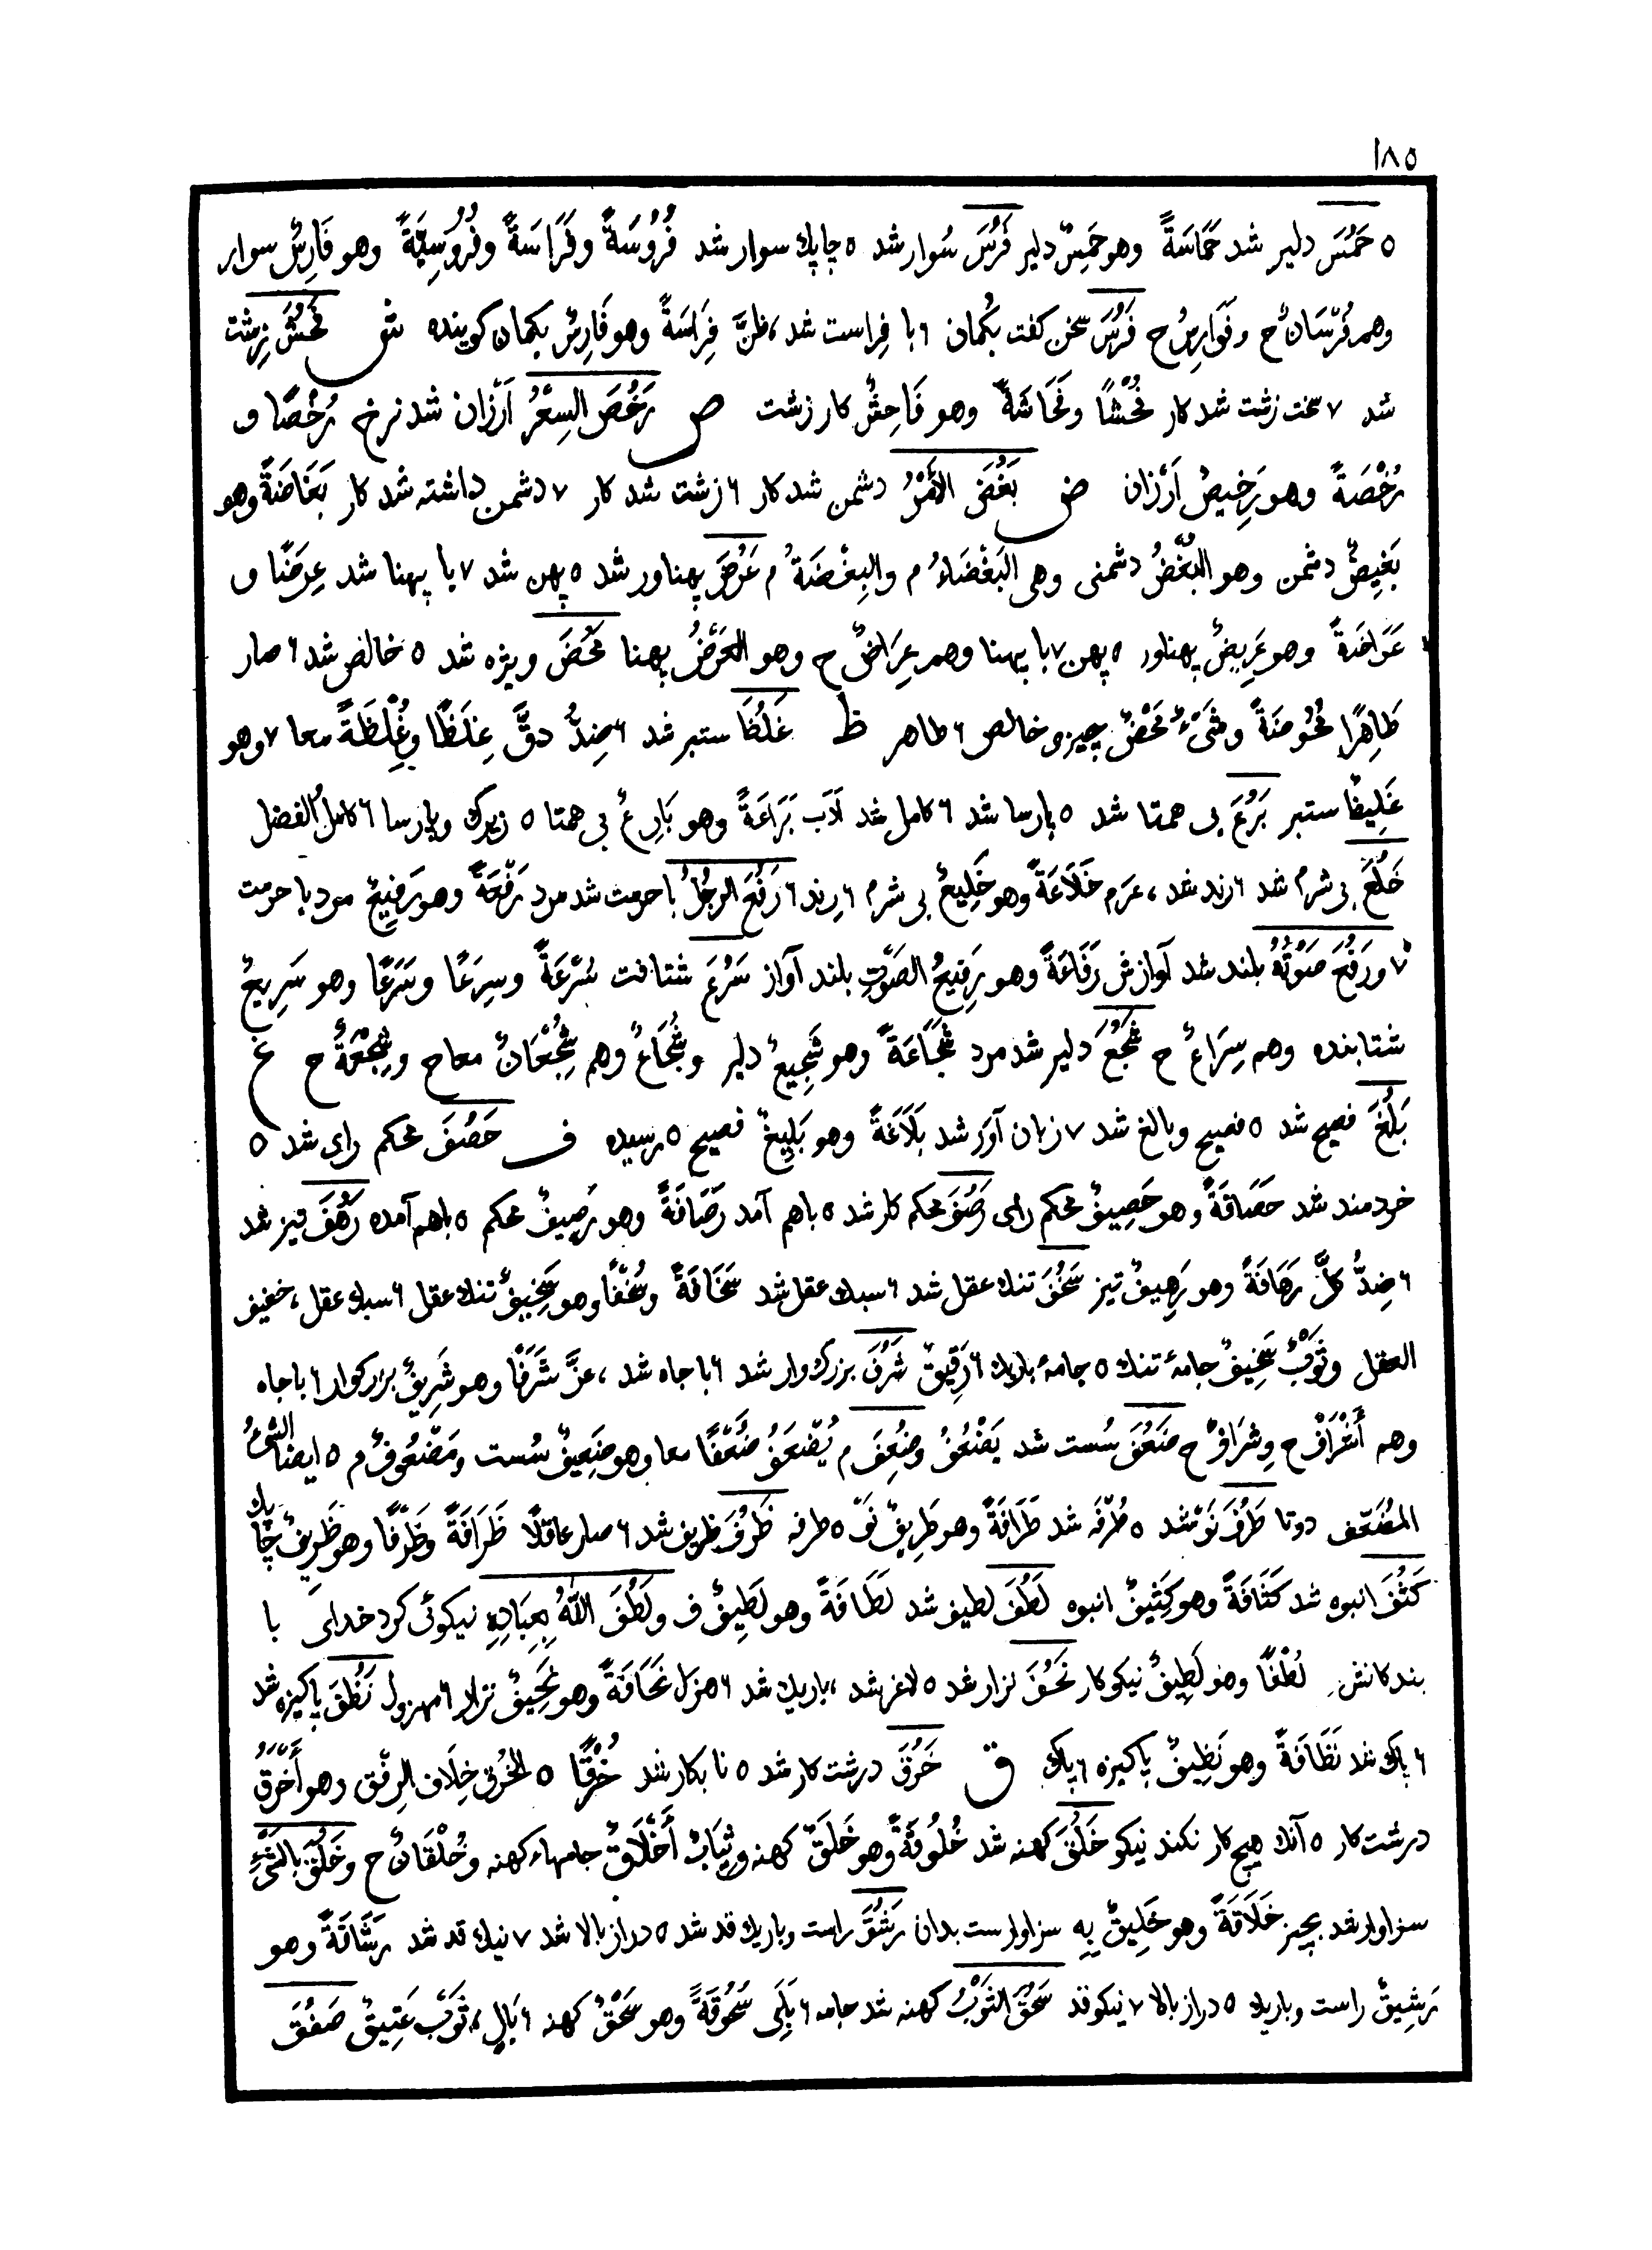 ١٨٥
٥ حَمُسَ دلیر شد حَمَاسَةً وهو حَمِسٌ دلیر فَرُسَ سُوار شد ٥ چابك سوار شد فُرُوسَةً وفَرَاسَةً وفُرُوسِيَّةً وهو فَارِسٌ سوار
وهم فُرْسَانٌ ح وفَوَارِسُ ح فَرُسَ سخن کفت بکُمان ٦ با فِراست شد، ظنَّ فِرَاسَةً وهو فَارِسٌ بکمان کوینده ش فَحُشَ زِشت
شد ٧ سخت زشت شد کار فُحْشًا وفَحَاشَةً وهو فَاحِشٌ کار زشت ص رَخُصَ السِعْرُ اَرْزان شد نرخ رُخْصًا و
رُخْصَةً وهو رَخِيصٌ اَرْزان ض بَغُضَ الأَمْرُ دشمن شد کار ٦ زشت شد کار ٧ دشمن داشته شد کار بَغَاضَةً وهو
بَغِيضٌ دشمن وهو البُغْضُ دشمنی وهی البَغْضَاءُ م والبِغْضَةُ م عَرُضَ پهناور شد ٥ پهن شد ٧ با پهنا شد عِرَضًا و
عَرَاضَةً وهو عَرِيضٌ پهناور ٥ پهن ٧ با پهنا وهم عِرَاضٌ ح وهو العَرْضُ پهنا مَحُضَ ویژه شد ٥ خالص شد ٦ صار
طَاهِرًا مُحُوضَةً وشَیْءٌ مَحْضٌ چیزی خالص ٦ طاهر ظ غَلُظَ ستبر شد ٦ ضِدُّ دقَّ غِلَظًا وغُِلْظَةً معا ٧ وهو
غَلِيظٌ ستبر بَرُعَ بی همتا شد ٥ پارسا شد ٦ کامل شد لَاَب بَرَاعَةً وهو بَارِعٌ بی همتا ٥ زیرك وپارسا ٦ کاملُ الفضل
خَلُعَ بی شرم شد ٦ رند شد، عرم خَلَاعَةً وهو خَلِيعٌ بی شرم ٦ رِند ٦ رَفُعَ الرجُلُ با حرمت شد مرد رَفْعَةً وهو رَفِيعٌ مرد با حرمت
٧ ورَفُعَ صَوْتُهُ بلند شد آوازش رَفَاعَةً وهو رَفِيعُ الصَوْتِ بلند آواز سَرُعَ شتافت سُرْعَةً وسِرَعًا وسَرَعًا وهو سَرِيعٌ
شتابنده وهم سِرَاعٌ ح شَجُعَ دلیر شد مرد شَجَاعَةً وهو شَجِيعٌ دلیر وشُجَاعٌ وهم شِجُْعَانٌ معاح وشِجْعَةٌ ح غ
بَلُغَ فصیح شد ٥ فصیح وبالغ شد ٧ زبان آور شد بَلَاغَةً وهو بَلِيغٌ فصیح ٥ رسیده ف حَصُفَ محکم رای شد ٥
خردمند شد حَصَافَةً وهو حَصِيفٌ محکم رای رَصُفَ محکم کار شد ٥ باهم آمد رَصَافَةً وهو رَصِيفٌ محکم ٥ باهم آمده رَهُفَ تیز شد
٦ ضِدُّ کَلَّ رَهَافَةً وهو رَهِيفٌ تیز سَخُفَ تنك عقل شد ٦ سبك عقل شد سَخَافَةً وسُخْفًا وهو سَخِيفٌ تنك عقل ٦ سبك عقل، خفیف
العقل وثَوْبٌ سَخِيفٌ جامهٔ تنك ٥ جامهٔ باریك ٦ رَقِيقٌ شَرُفَ بزرك وار شد ٦ با جاه شد، عزَّ شَرَفًا وهو شَرِيفٌ بزرکوار ٦ با جاه
وهم أَشْرَافٌ ح وشِرَافٌ ح ضَعُفَ سُست شد یَضْعُفُ وضُعِفَ م يُضْعَفُ ضُعْفًا معا وهو ضَعِيفٌ سُست ومَضْعُوفٌ م ٥ ایضا الشیءُ
المُضَعَّف دوتا طَرُفَ نَوْ شد ٥ طُرْفَه شد طَرَافَةً وهو طَرِيفٌ نَوْ ٥ طرفه ظَرُفَ ظریف شد ٦ صار عاقلًا ظَرَافَةً وظَرْفًا وهو ظَرِيفٌ چابك
کَثُفَ انبوه شد کَثَافَةً وهو کَثِيفٌ انبوه لَطُفَ لطیف شد لَطَافَةً وهو لَطِيفٌ ف ولَطُفَ اللّٰهُ بِعِبَادِهِ نیکوئی کرد خدای با
بندکانش لُطْفًا وهو لَطِيفٌ نیکوکار نَحُفَ نزار شد ٥ لاغر شد، باریك شد ٦ هزل نَحَافَةً وهو نَحِيفٌ نزار ٦ مهزول نَظُفَ پاکیزه شد
٦ پاك شد نَظَافَةً وهو نَظِيفٌ پاکیزه ٦ پاك ق خَرُقَ درشت کار شد ٥ نابکار شد خُرْقًا ٥ الخُرق خِلَاف الرِفْق وهو أَخْرَقُ
درشت کار ٥ آنك هیچ کار نکند نیکو خَلُقَ کهنه شد خُلُوقَةً وهو خَلَقٌ کهنه وثِيَابٌ أَخْلَاقٌ جامهاء کهنه وخُلْقَانٌ ح وخَلُقَ بالشَیْءِ
سزاوار شد بچیز خَلَاقَةً وهو خَلِيقٌ بِهِ سزاوارست بدان رَشُقَ راست وباریك قد شد ٥ دراز بالا شد ٧ نیك قد شد رَشَاقَةً وهو
رَشِيقٌ راست وباریك ٥ دراز بالا ٧ نیکو قد سَحُقَ الثَوْبُ کهنه شد جامه ٦ بَلِیَ سُحُوقَةً وهو سَحْقٌ کهنه ٦ بَالٍ، ثَوْبٌ عَتِيقٌ صَفُقَ